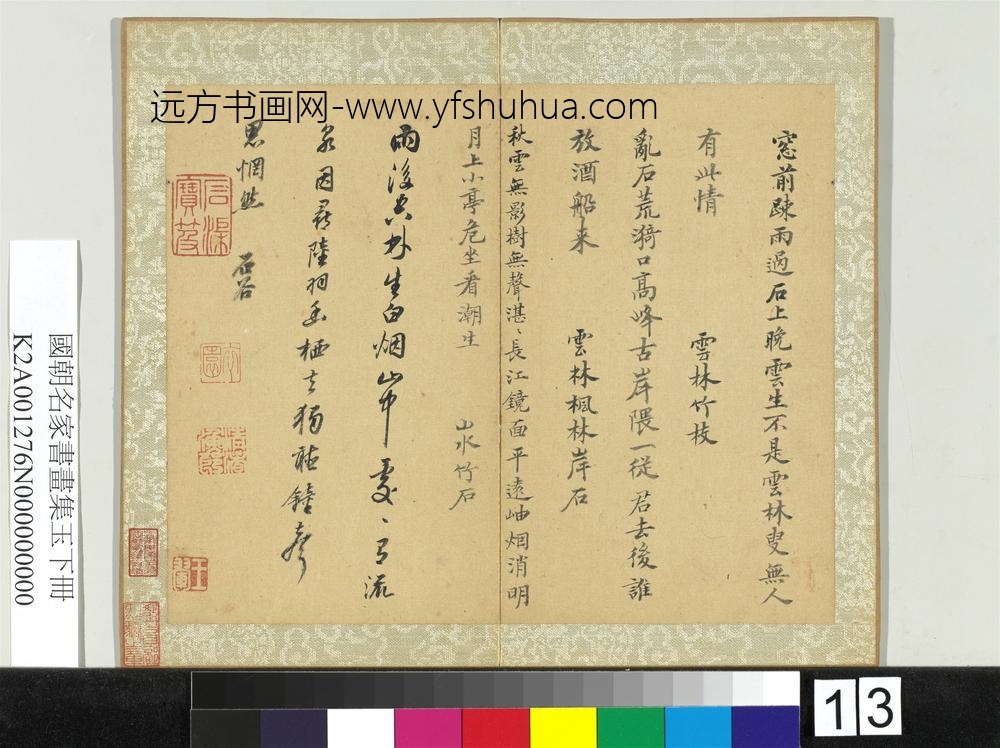 远方书画网-www.yfshuhua.com
窓前踈雨過石上晚雲生不是雲林叟無人
有此情 雲林竹枝
亂石荒漪口高峰古岸隈一從君去後誰
放酒船来 雲林楓林岸石
秋雲無影樹無聲湛〻長江鏡面平遠岫烟消明
月上小亭危坐看潮生 山水竹石
雨後空林生白烟山中處〻有流
泉因尋陸羽幽栖去獨聽鐘聲
思惘然 石谷
國朝名家書畫集玉下冊
K2A001276N000000000
13